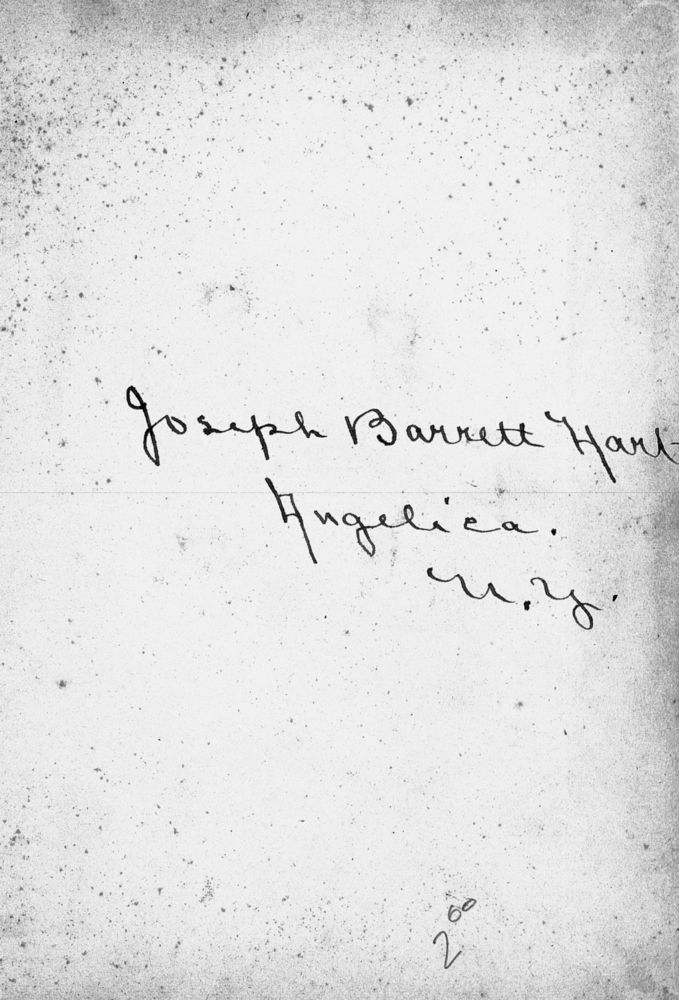 Joseph Barrett Hart
Angelica.
N.Y.
2 00